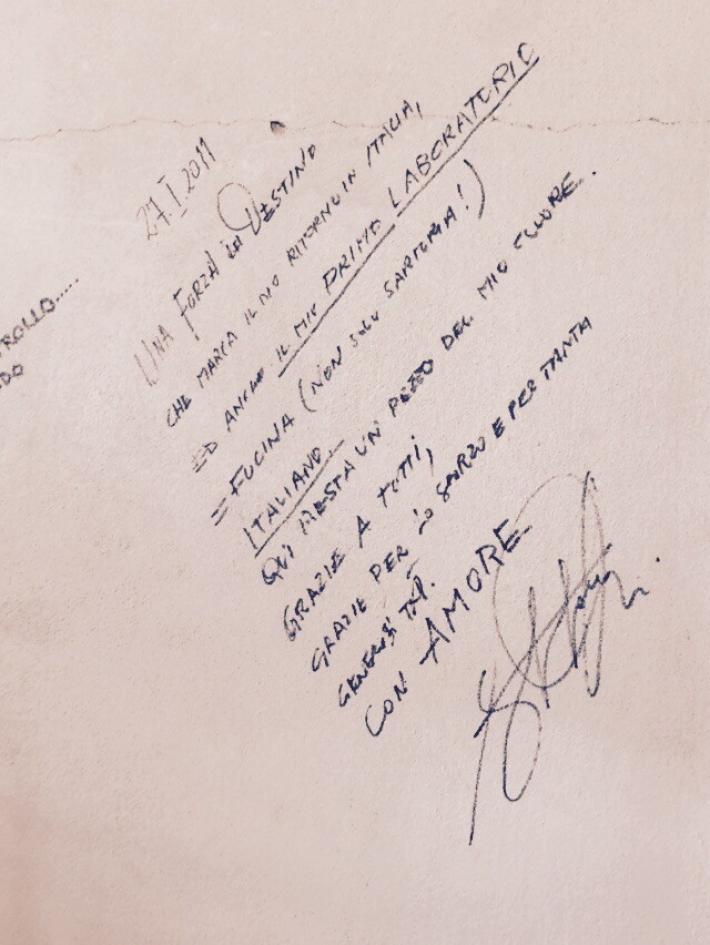 27.I.2011
UNA FORZA DEL DESTINO
CHE MARCA IL MIO RITORNO IN ITALIA,
ED ANCHE IL MIO PRIMO LABORATORIO
= FUCINA (NON SOLO SARTORIA!)
ITALIANO
QUI RESTA UN PEZZO DEL MIO CUORE.
GRAZIE A TUTTI,
GRAZIE PER LO SFORZO E PER TANTA
CON AMORE
ROLLO.....
DO